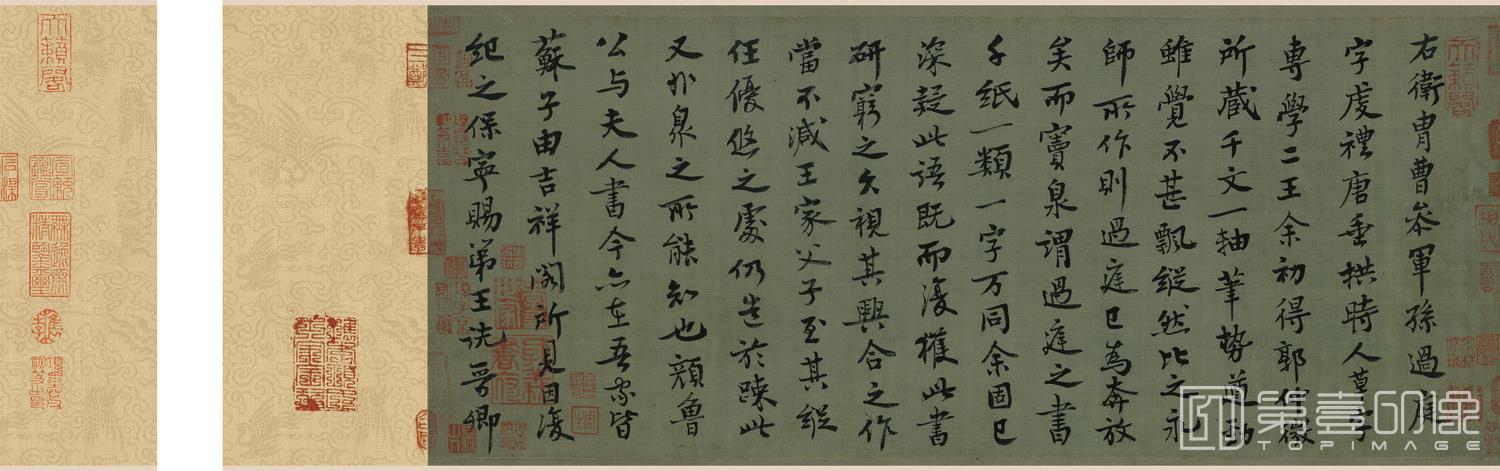 右衛胄曹叅軍孫過庭
字虔禮唐垂拱時人草字
專學二王余初得郭仲微
所蔵千文一軸筆勢遒勁
雖覺不甚飄縱然比之永
師所作則過庭已為奔放
矣而竇臮謂過庭之書
千紙一類一字万同余固已
深疑此語既而復獲此書
研窮之久視其興合之作
當不減王家父子至其縱
任優悠之處仍造於踈此
又非臮之所能知也顔魯
公与夫人書今亦在吾家皆
蘇子由吉祥閣所見因復
紀之保寧賜第王詵晉卿
天籟閣
天籟閣
第壹印象
TOPIMAGE